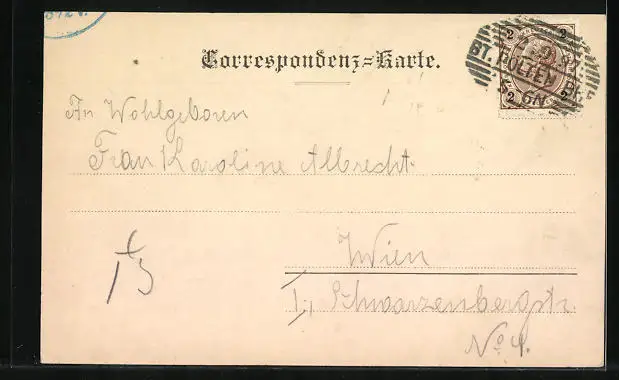 Correspondenz-Karte.
2 2
ST. PÖLTEN
2 2
6N
An Wohlgeboren
Frau Karoline Albrecht.
Wien
I., Schwarzenbergstr.
No 4.